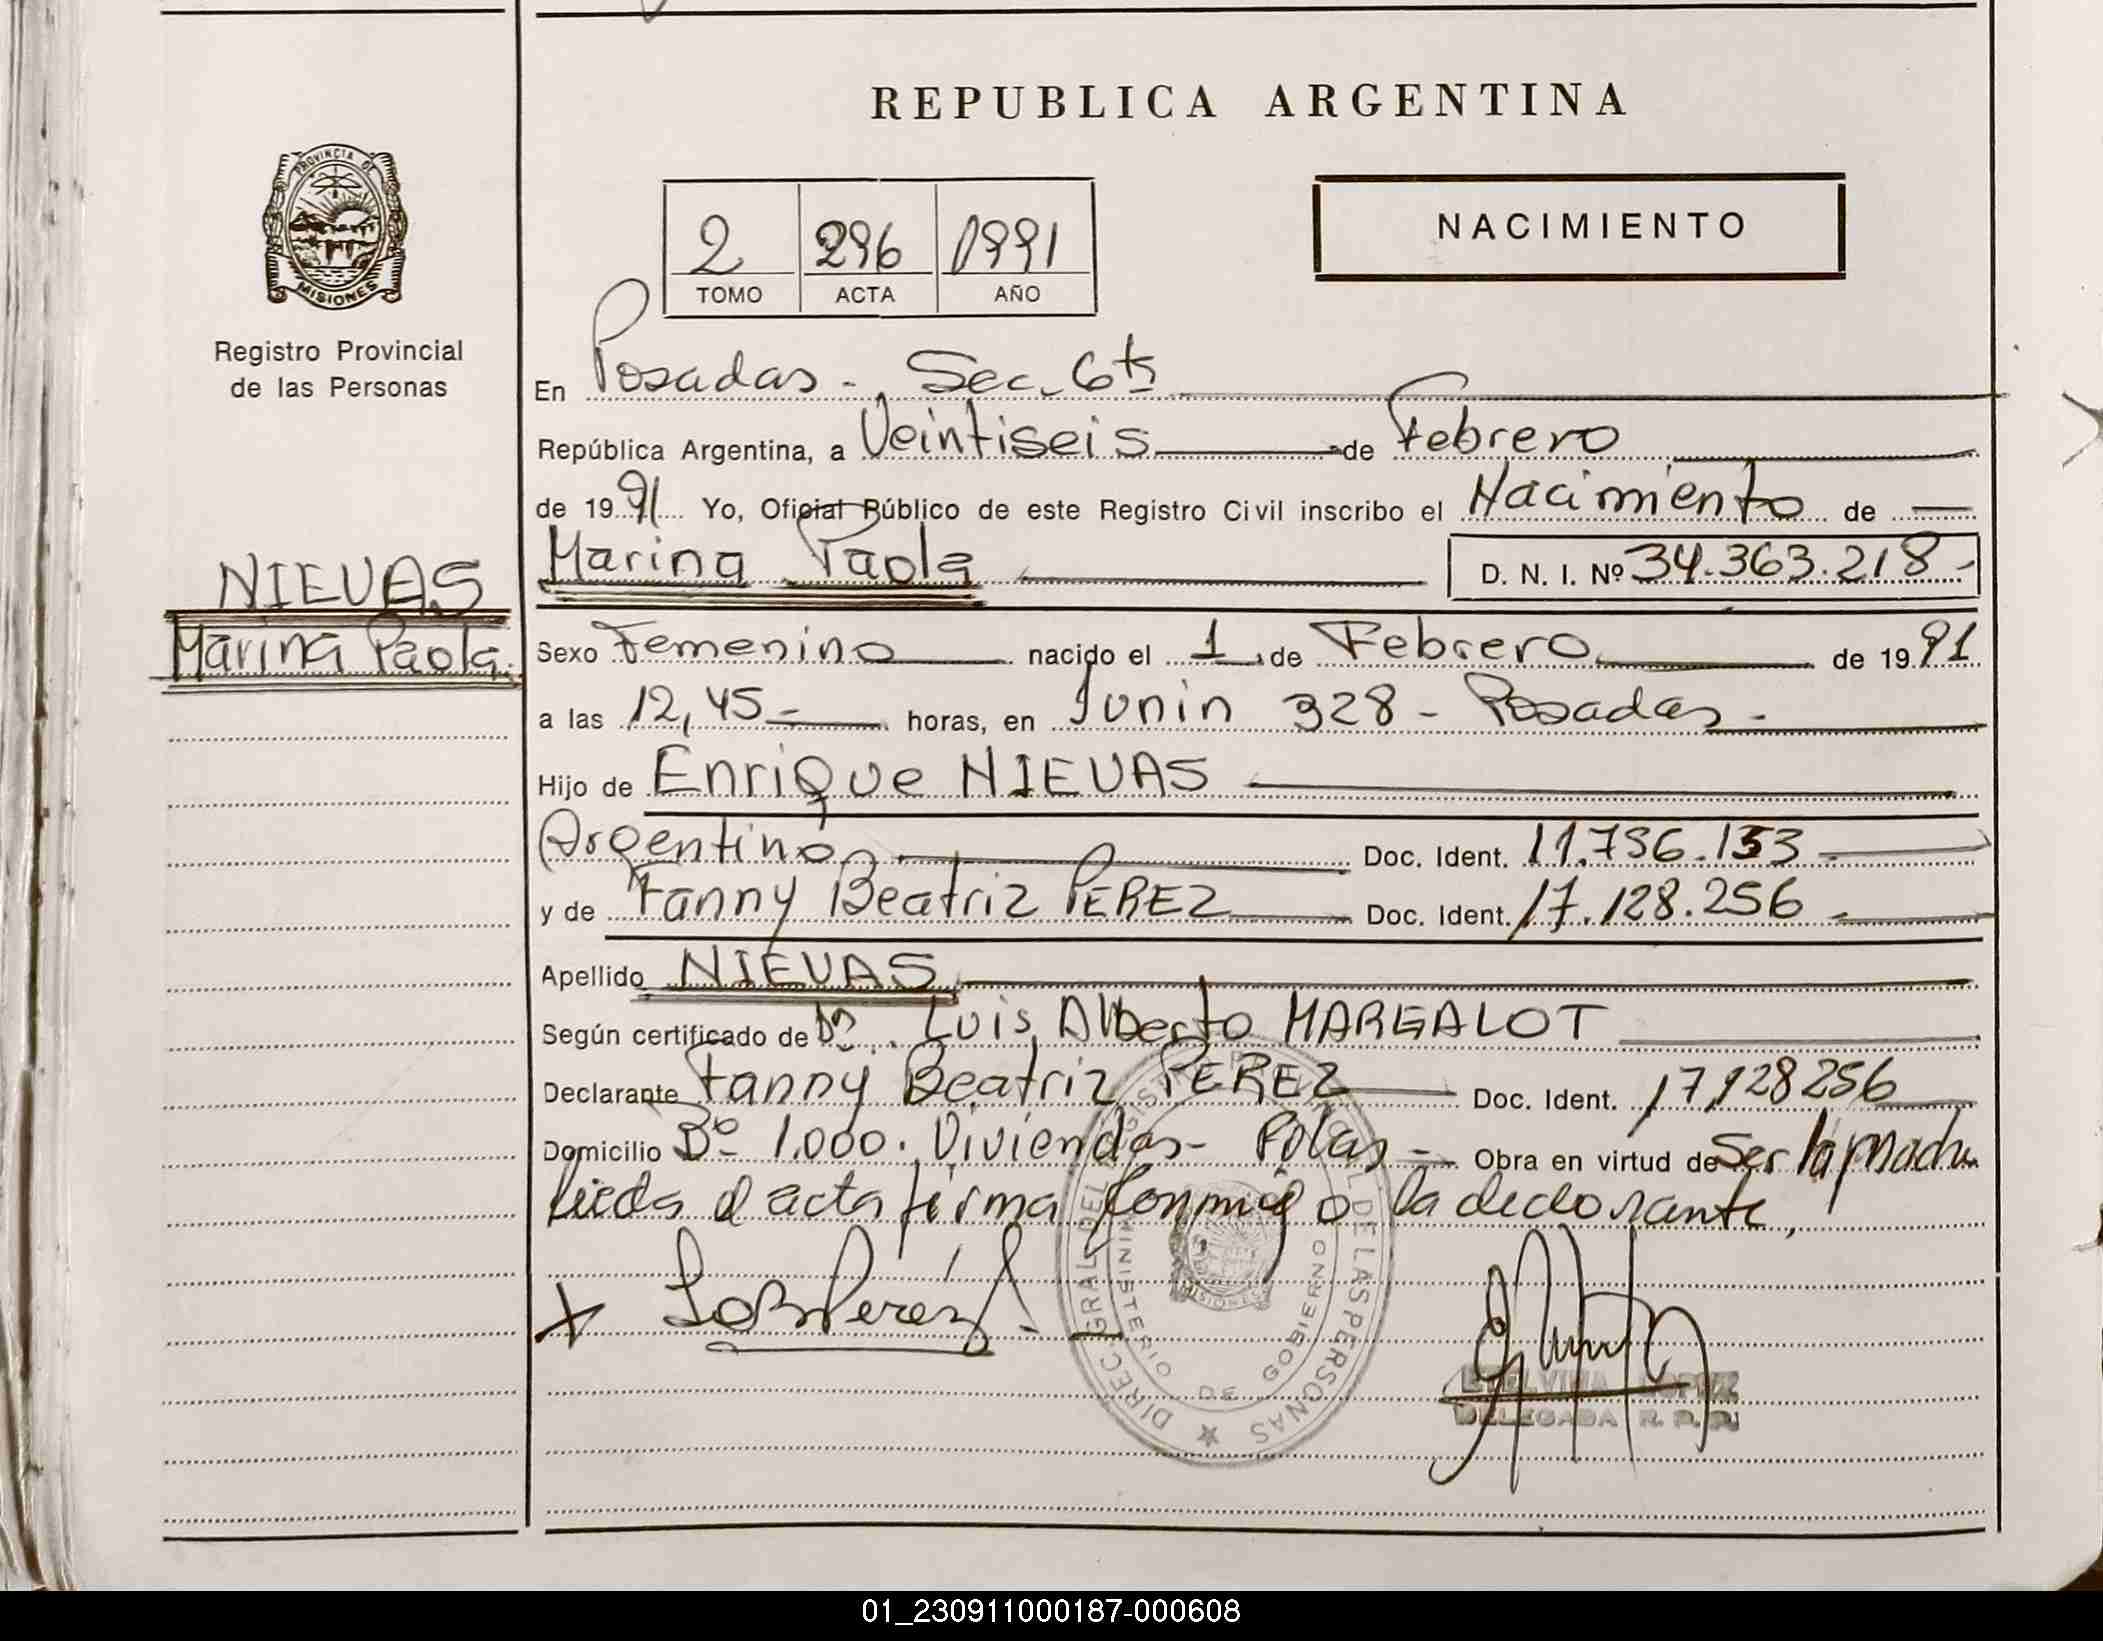 REPUBLICA ARGENTINA
PROVINCIA DE
MISIONES
Registro Provincial
de las Personas
2 296 1991
TOMO ACTA AÑO
NACIMIENTO
En Posadas - Sec. 6ta
República Argentina, a Veintiseis de Febrero
de 1991 Yo, Oficial Público de este Registro Civil inscribo el Nacimiento de
Marina Paola D. N. I. Nº 34.363.218-
NIEVAS
Marina Paola.
Sexo Femenino nacido el 1 de Febrero de 1991
a las 12,45- horas, en Junin 328 - Posadas -
Hijo de Enrique NIEVAS
Argentino Doc. Ident. 11.796.153
y de Fanny Beatriz PEREZ Doc. Ident. 17.128.256
Apellido NIEVAS
Según certificado de Dr. Luis Alberto MARGALOT
Declarante Fanny Beatriz PEREZ Doc. Ident. 17,128256
Domicilio Bº 1.000. Viviendas - Pdas - Obra en virtud de Ser la madre
leida el acta firma conmigo la declarante,
DIREC. GRAL. DEL REGISTRO PROVINCIAL DE LAS PERSONAS
MINISTERIO DE GOBIERNO
MISIONES
ETELVINA LOPEZ
DELEGADA R. P. P.
01_230911000187-000608